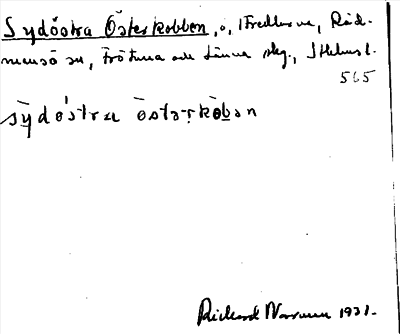 Sydöstra Österkobben, ö, i Fredlarna, Råd-
mansö sn, Frötuna och Länna skg., Sthlms l.
565
sȳdö́stra ȫstərkåbən
Rickard Norman 1931.